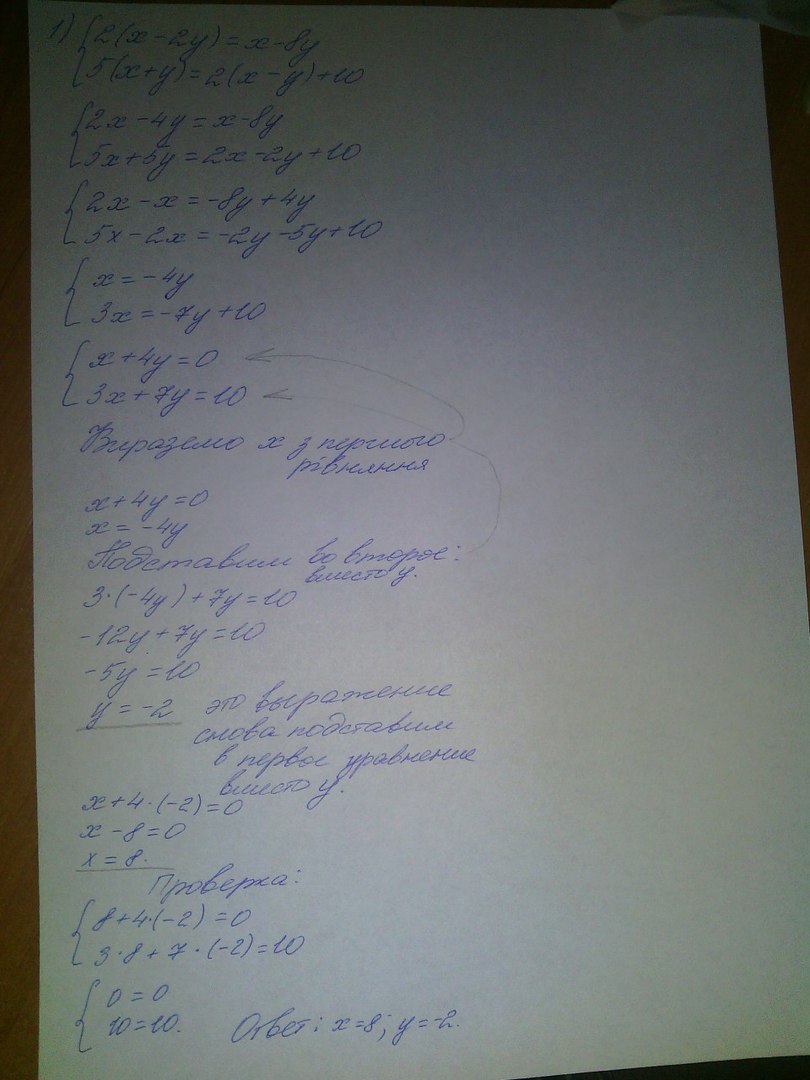 1) { 2(x-2y)=x-8y
5(x+y)=2(x-y)+10
{ 2x-4y=x-8y
5x+5y=2x-2y+10
{ 2x-x=-8y+4y
5x-2x=-2y-5y+10
{ x=-4y
3x=-7y+10
{ x+4y=0
3x+7y=10
Вираземо x з першого
рівняння
x+4y=0
x=-4y
Подставим во второе:
вместо y.
3·(-4y)+7y=10
-12y+7y=10
-5y=10
y=-2 это выражение
снова подставим
в первое уравнение
вместо y.
x+4·(-2)=0
x-8=0
x=8.
Проверка:
{ 8+4·(-2)=0
3·8+7·(-2)=10
{ 0=0
10=10. Ответ: x=8; y=-2.